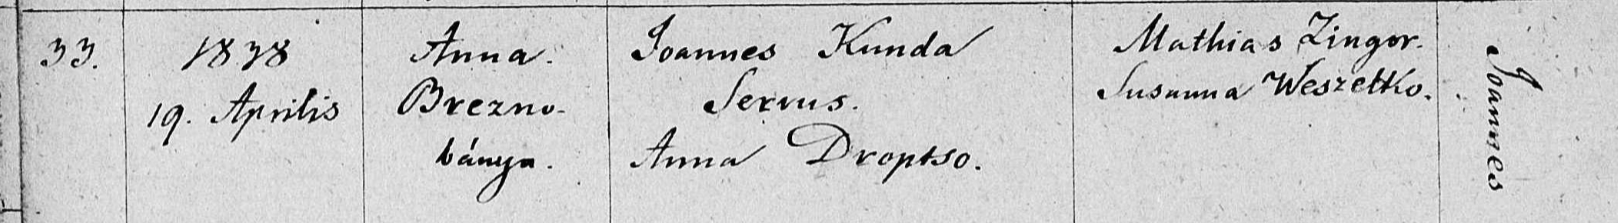 33.
1838
19. Aprilis
Anna.
Brezno-
bánya.
Joannes Kunda
Servus.
Anna Droptso.
Mathias Zingor.
Susanna Weszelko.
Joannes